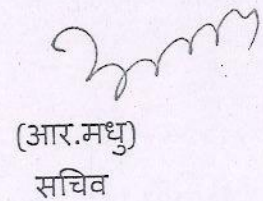 (आर.मधु)
सचिव